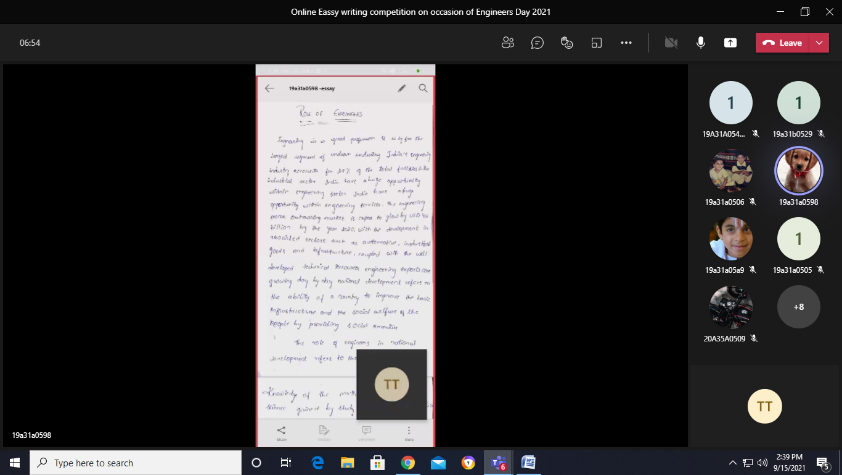 Online Eassy writing competition on occasion of Engineers Day 2021
06:54
Leave
19a31a0598 -essay
ROLE OF ENGINEERS
Engineering is a good profession is by far the
largest segment of indian industry India's engineering
industry accounts for 30% of the total factories in the
industrial sector India have a huge opportunity
within engineering sector India have a huge
opportunity within engineering services. The engineering
outsourcing market is
billion by the year 2020 with the development in
sectors such as automotive, industrial
goods and infrastructure, coupled with the well
developed technical resources engineering expertise
growing day by day national development refers to
the ability of a country to improve the
infrastructure and the social welfare of the
people by providing social amenities
The role of engineers in national
development refers to the
Knowledge of the
by study
TT
19a31a0598
1
19A31A054...
1
19a31b0529
19a31a0506
19a31a0598
19a31a05a9
1
19a31a0505
20A35A0509
+8
TT
Type here to search
6
2:39 PM
9/15/2021
5